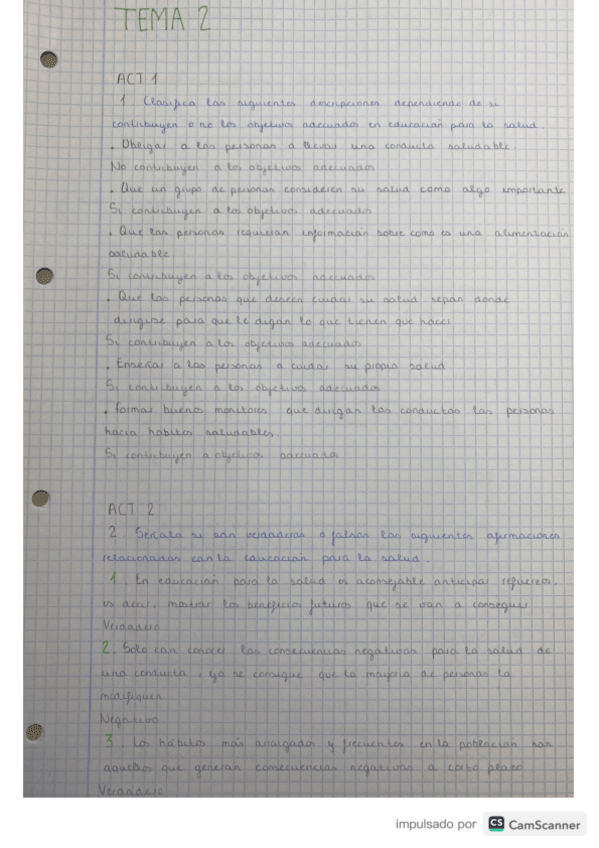 TEMA 2
ACT 1
1. Clasifica las siguientes descripciones dependiendo de si
contribuyen o no los objetivos adecuados en educación para la salud.
. Obligar a las personas a llevar una conducta saludable
No contribuyen a los objetivos adecuados
. Que un grupo de personas consideren su salud como algo importante
Si contribuyen a los objetivos adecuados
. Que las personas requieran información sobre como es una alimentación
saludable
Si contribuyen a los objetivos adecuados
. Que las personas que deseen cuidar su salud sepan donde
dirigirse para que le digan lo que tienen que hacer
Si contribuyen a los objetivos adecuados
. Enseñar a las personas a cuidar su propia salud
Si contribuyen a los objetivos adecuados
. formar buenos monitores que dirigan las conductas las personas
hacia habitos saludables.
Si contribuyen a objetivos adecuados
ACT 2
2. Señala si son verdaderas o falsas las siguientes afirmaciones
relacionadas con la educación para la salud.
1. En educación para la salud es aconsejable anticipar refuerzos,
es decir, mostrar los beneficios futuros que se van a conseguir
Verdadero
2. Solo con conocer las consecuencias negativas para la salud de
una conducta, ya se consigue que la mayoria de personas la
modifiquen
Negativo
3. Los hábitos más arraigados y frecuentes en la población son
aquellos que generan consecuencias negativas a corto plazo
Verdadero
impulsado por CS CamScanner